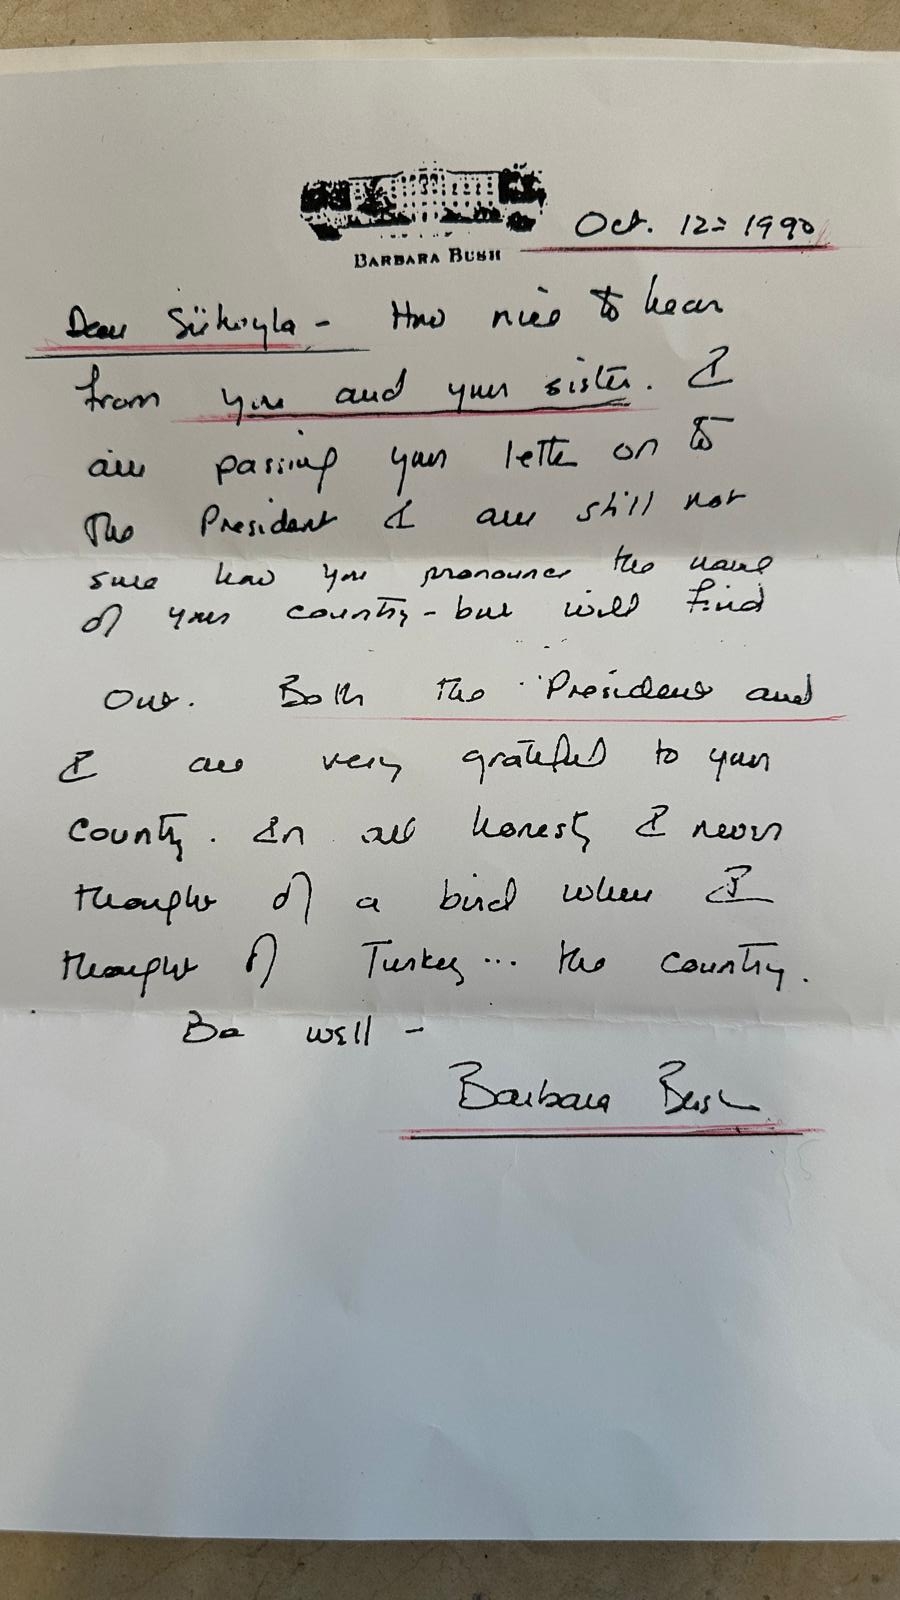 BARBARA BUSH
Oct. 12= 1990
Dear - How nice to hear
from you and your sister. I
am passing your letter on to
the President I am still not
sure how you pronounce the name
of your country - but will find
out. Both the President and
I are very grateful to your
country. In all honesty I never
thought of a bird when I
thought of Turkey... the country.
Be well -
Barbara Bush